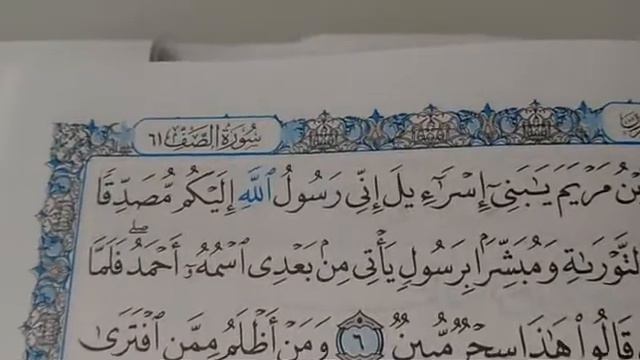 سُورَةُ الصَّفِّ ٦١
مَرْيَمَ يَـٰبَنِىٓ إِسْرَٰٓءِيلَ إِنِّى رَسُولُ ٱللَّهِ إِلَيْكُم مُّصَدِّقًا
ٱلتَّوْرَىٰةِ وَمُبَشِّرًۢا بِرَسُولٍ يَأْتِى مِنۢ بَعْدِى ٱسْمُهُۥٓ أَحْمَدُ ۖ فَلَمَّا
قَالُوا۟ هَـٰذَا سِحْرٌ مُّبِينٌ ٦ وَمَنْ أَظْلَمُ مِمَّنِ ٱفْتَرَىٰ